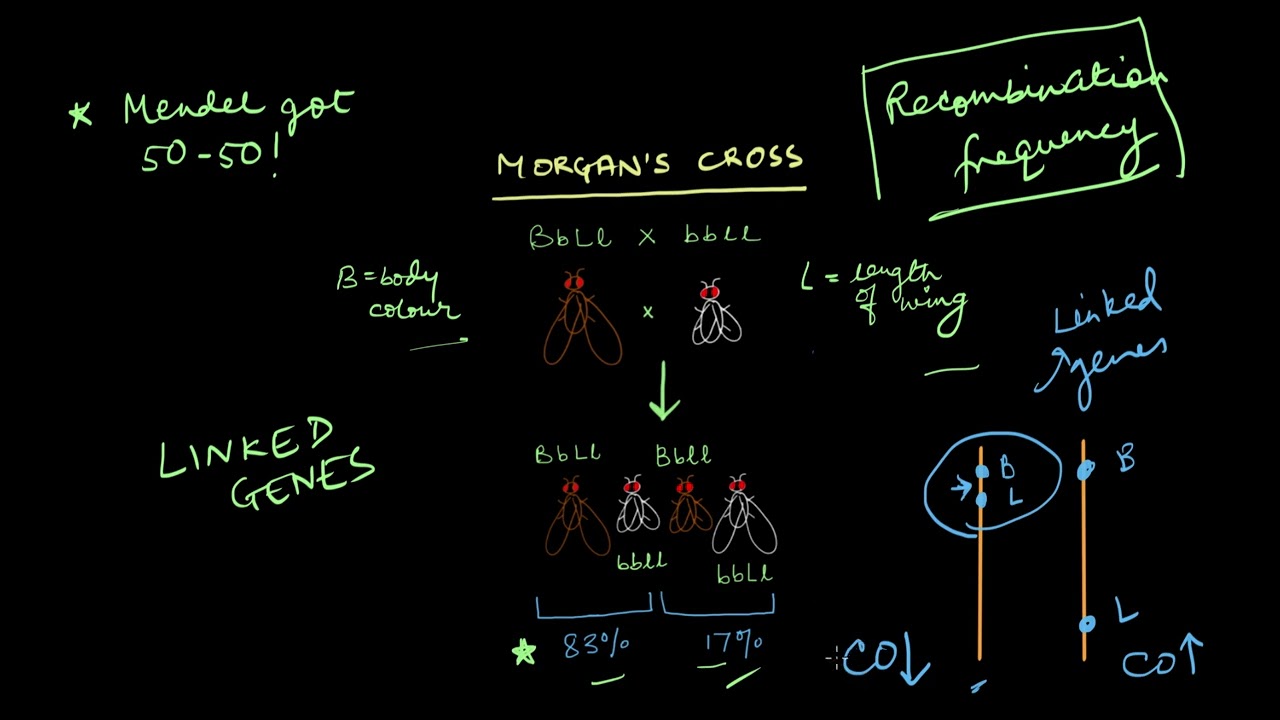 ★ Mendel got
50-50!
MORGAN'S CROSS
Recombination
frequency
BbLl x bbll
B = body
colour
x
L = length
of wing
Linked
genes
LINKED
GENES
BbLl Bbll
bbll
bbLl
★ 83% 17%
B
L
B
L
CO↓
CO↑